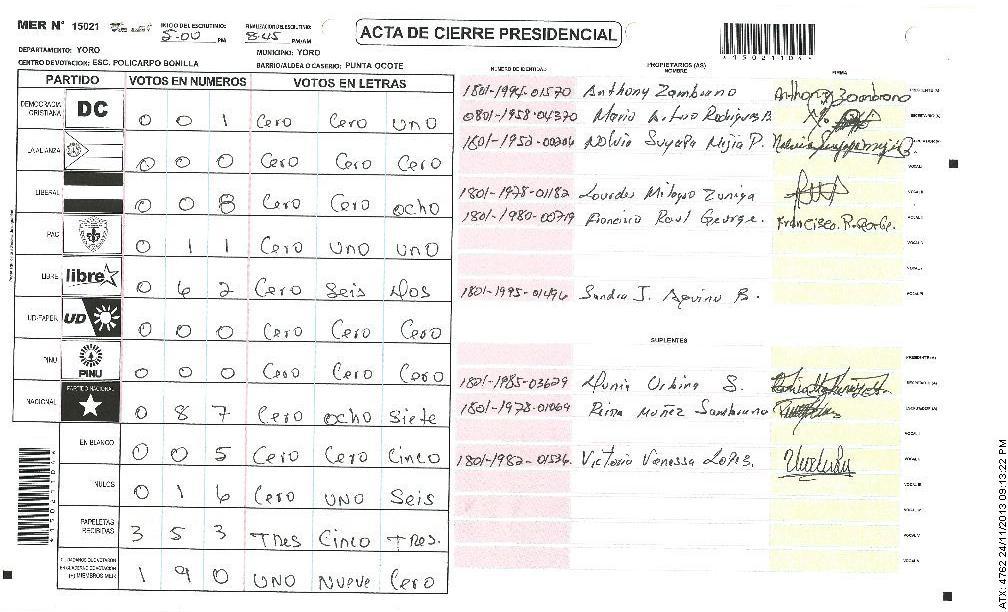 MER N° 15021
INICIO DEL ESCRUTINIO: 5:00 PM
FINALIZACION DEL ESCRUTINIO: 8:45 PM/AM
ACTA DE CIERRE PRESIDENCIAL
DEPARTAMENTO: YORO
MUNICIPIO: YORO
CENTRO DE VOTACION: ESC. POLICARPO BONILLA
BARRIO/ALDEA O CASERIO: PUNTA OCOTE
*150211044*
PARTIDO VOTOS EN NUMEROS VOTOS EN LETRAS
DEMOCRACIA CRISTIANA DC 0 0 1 Cero Cero UNO
LA ALIANZA 0 0 0 Cero Cero Cero
LIBERAL 0 0 8 Cero Cero ocho
PAC 0 1 1 Cero UNO UNO
LIBRE libre 0 6 2 Cero Seis Dos
UD-FAPER UD 0 0 0 Cero Cero Cero
PINU PINU 0 0 0 Cero Cero Cero
NACIONAL PARTIDO NACIONAL 0 8 7 Cero ocho Siete
EN BLANCO 0 0 5 Cero Cero Cinco
NULOS 0 1 6 Cero UNO Seis
PAPELETAS RECIBIDAS 3 5 3 Tres Cinco Tres.
1 9 0 UNO Nueve Cero
NUMERO DE IDENTIDAD PROPIETARIOS (AS) NOMBRE FIRMA
1801-1994-01570 Anthony Zambrano Anthony Zambrano PRESIDENTE (A)
0801-1958-04370 Mario Arturo Rodriguez B SECRETARIO (A)
1801-1952-00206 Nolvia Suyapa Mejia P. ESCRUTADOR (A)
VOCAL I
1801-1978-01182 Lourdes Milagro Zuniga VOCAL II
1801-1980-00719 Francisco Raul George. Francisco. R. George. VOCAL III
1801-1995-01496 Sandra J. Aquino B.
SUPLENTES
PRESIDENTE (A)
1801-1985-03629 Dunia Urbina S. SECRETARIO (A)
1801-1978-01069 Reina Muñez Sambrano ESCRUTADOR (A)
VOCAL I
1801-1982-01536. Victoria Vanessa Lopez.
ATX: 4762 24/11/2013 09:13:22 PM